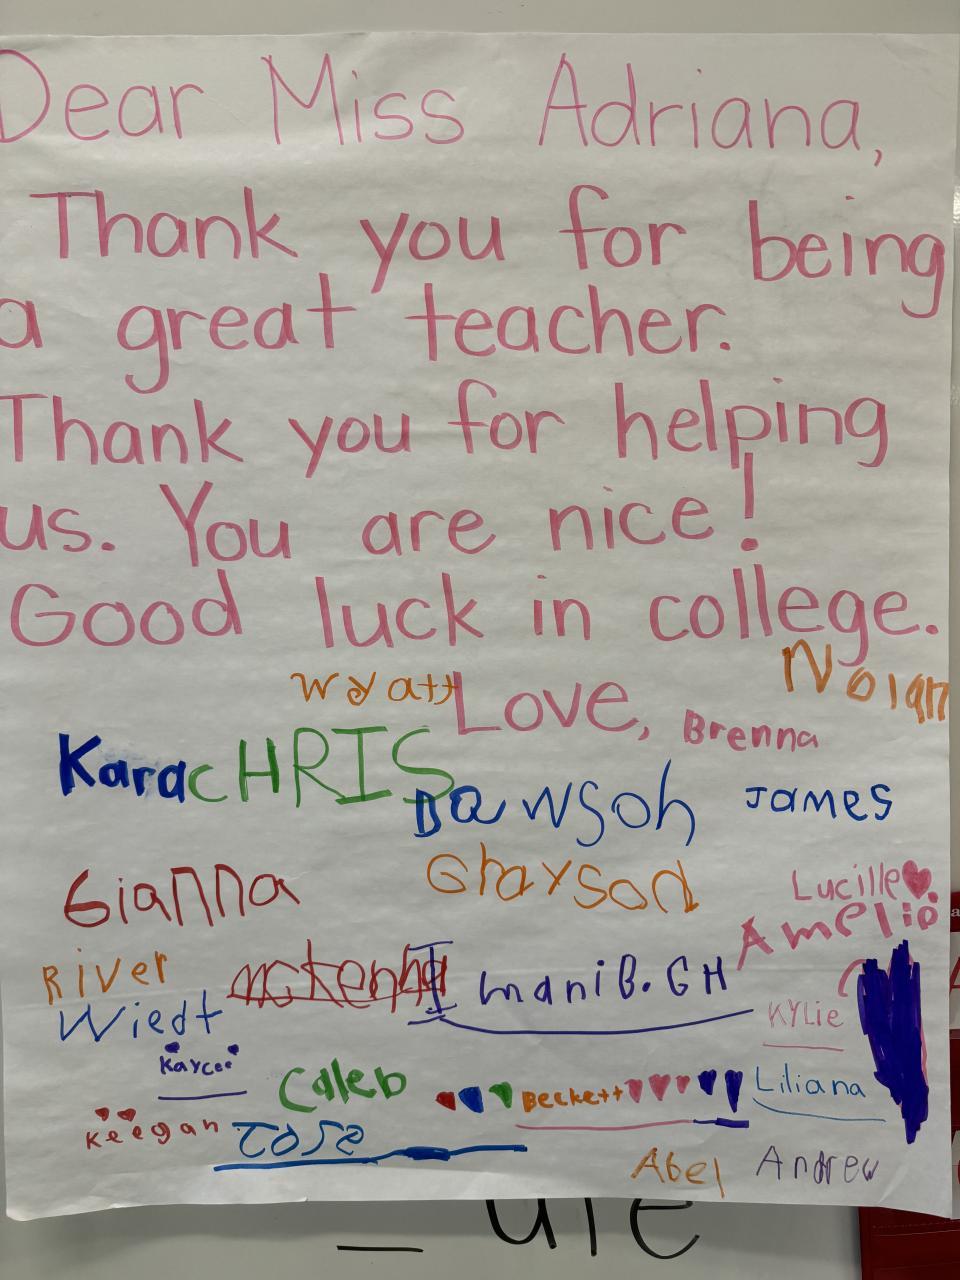 Dear Miss Adriana,
Thank you for being
a great teacher.
Thank you for helping
us. You are nice!
Good luck in college.
Love,
Nolan
Wyatt
Brenna
Kara
CHRIS
Dawson
James
Gianna
Grayson
Lucille
Amelia
River
Wiedt
mckenna
Imani B. GH
KYLie
Kaycee
Caleb
Beckett
Liliana
Keegan
Jose
Abel
Andrew